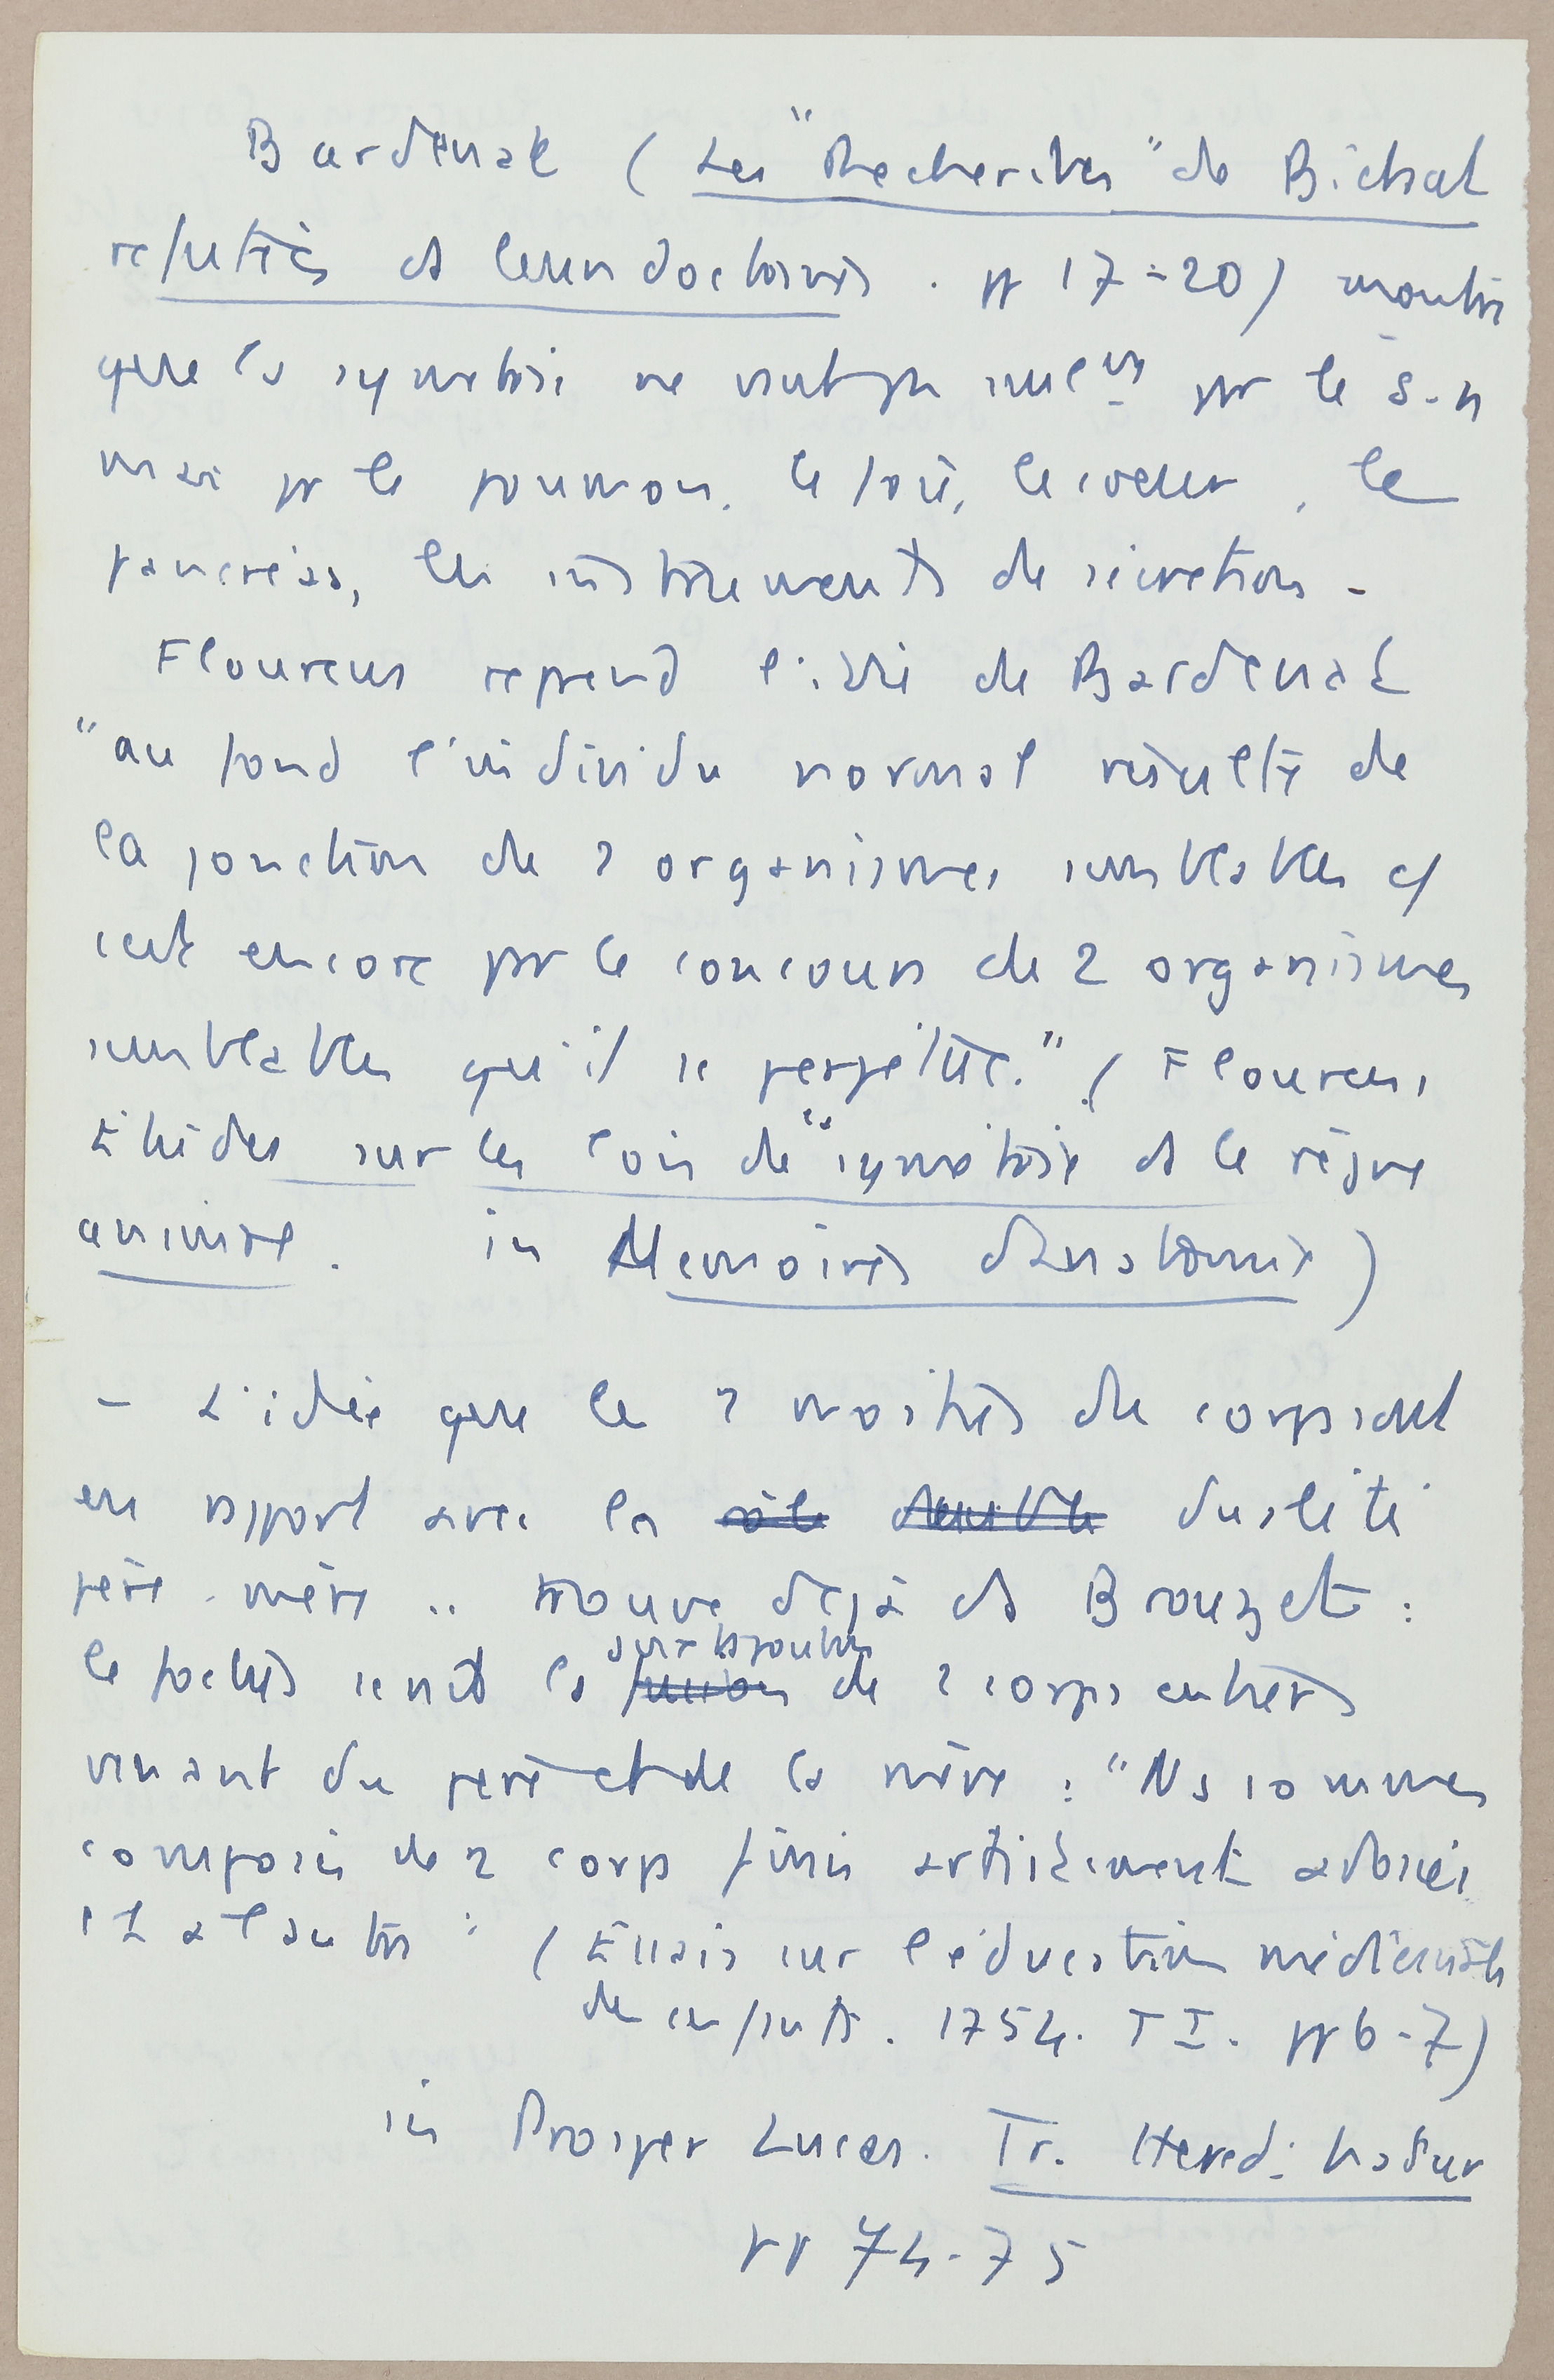 Bardenat (Les "Recherches" de Bichat
réfutées ds leurs doctrines. pp 17-20) montre
que la symétrie ne vaut pas seulemt pr le S-n
mais pr le poumon, le foie, le coeur, le
pancréas, les instruments de sécrétion -
Flourens reprend l'idée de Bardenat
"au fond l'individu normal résulte de
la jonction de 2 organismes semblables et
c'est encore par le concours de 2 organismes
semblables qu'il se perpétue." (Flourens,
Etudes sur les lois de "symétrie ds le règne
animal. in Memoires d'Anatomie)
- L'idée que les 2 moitiés du corps sont
en rapport avec la rôle double dualité
père-mère .. trouve déjà ds Brouzet :
le foetus serait la juxtaposition fusion de 2 corps entiers
venant du père et de la mère : "Ns sommes
composés de 2 corps finis artistement adossés
l'1 à l'autre" (Essais sur l'éducation médicinale
des enfants. 1754. T I. pp 6-7)
in Prosper Lucas. Tr. Hered. natur
pp 74-75